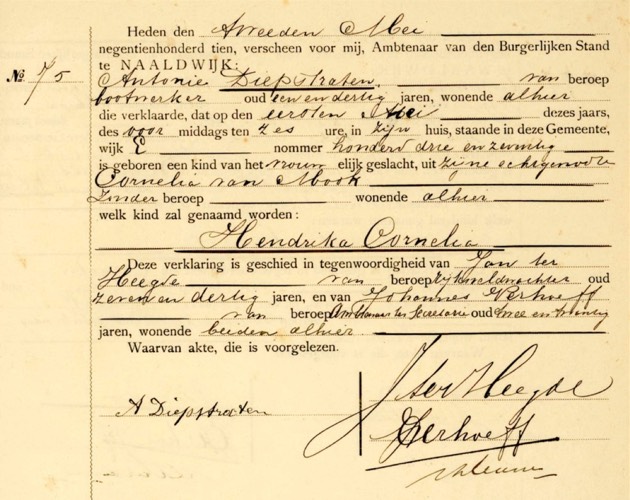 Heden den tweeden Mei
negentienhonderd tien, verscheen voor mij, Ambtenaar van den Burgerlijken Stand
te NAALDWIJK:
No. 75
Antonie Diepstraten, van beroep
bootwerker oud een en dertig jaren, wonende alhier
die verklaarde, dat op den eersten Mei dezes jaars,
des voor middags ten zes ure, in zijn huis, staande in deze Gemeente,
wijk E nommer honderd drie en zeventig
is geboren een kind van het vrouw elijk geslacht, uit zijne echtgenoote
Cornelia van Mook
zonder beroep wonende alhier
welk kind zal genaamd worden:
Hendrika Cornelia
Deze verklaring is geschied in tegenwoordigheid van Jan ter
Heegde van beroep Rijksveldwachter oud
zeven en dertig jaren, en van Johannes Verhoeff
van beroep Ambtenaar ter Secretarie oud twee en twintig
jaren, wonende beiden alhier
Waarvan akte, die is voorgelezen.
J ter Heegde
A Diepstraten
Verhoeff